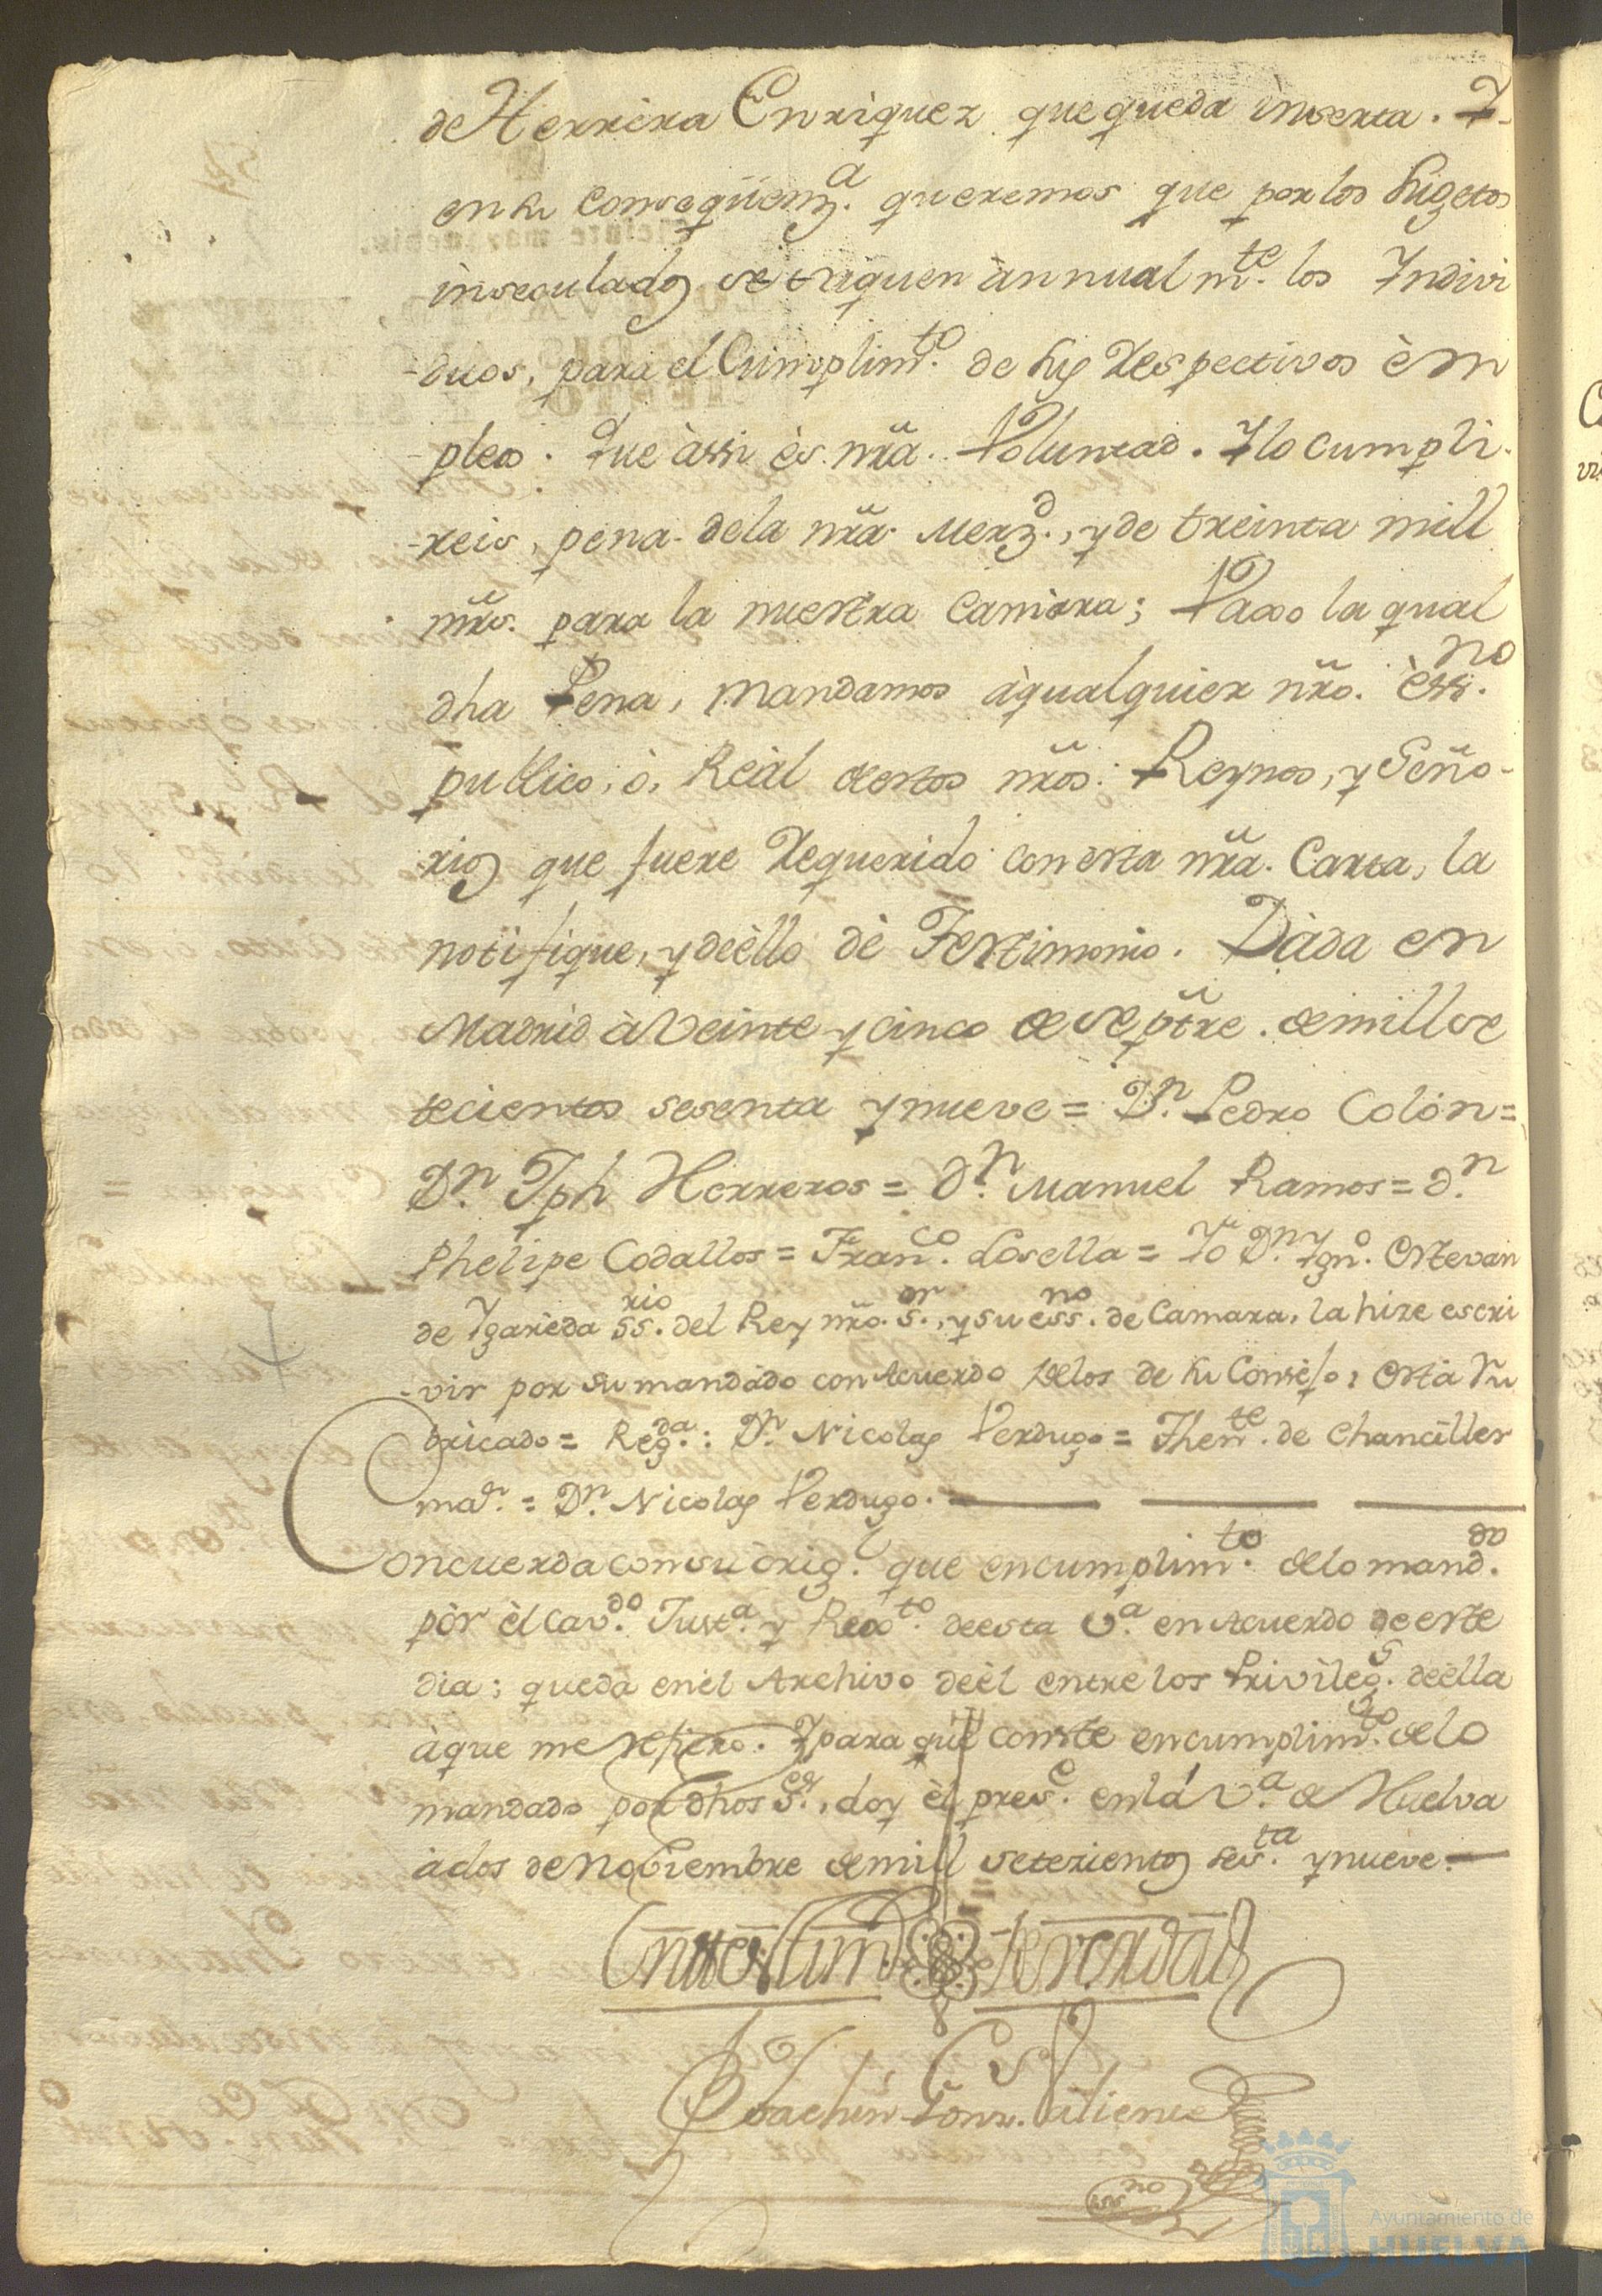 de Herrera Enriquez que queda inserta. Y
en su conseqüenz.ª queremos que por los sugetos
inseculados se saquen annualm.te los Indivi
-duos, para el Cumplim.to de sus respectivos em
-pleos. Que assi es nrã. Voluntad. Y lo cumpli-
-reis, pena de la nrã. Merz.d, y de treinta mill
mrs̃. para la nuestra Camara; Vaxo la qual
dha Pena, mandamos à qualquier nrõ. ess.no
publico, ò, Reàl destos nrõs. Reynos, y Seño-
-rios que fuere requerido con esta nrã. Carta, la
notifique, y de ello dè Testimonio. Dada en
Madrid à Veinte y cinco de septrẽ. de mill se
tecientos sesenta y nueve = D.n Pedro Colón =
D.n Jph Herreros = D.n Manuel Ramos = D.n
Phelipe Codallos = Fran.co Losella = Yo D.n Ygn.o Estevan
de Ygareda ss.rio del Rey nrõ. S.or, y su ess.no de Camara, la hize escri
-vir por su mandado con Acuerdo delos de su Consejo, està ru
bricado = Reg.da: D.n Nicolas Verdugo = Then.te de Chanciller
ma.r = D.n Nicolas Verdugo.
Concuerda con su orig.l que en cumplim.to de lo mand.do
pòr èl Cav.do Just.a y Rex.to de esta V.a en Acuerdo de este
dia; queda en èl Archivo de èl entre los Privileg.s de èlla
à que me refiero. Y para que conste en cumplim.to de lo
mandado por dhos S.es, doy èl pres.e en la V.a de Huelva
à dos de Noviembre de mill setezientos ses.ta y nueve.
En testim.o de verdad
Joachin Gonz. Valiente
ess.no
Ayuntamiento de
HUELVA